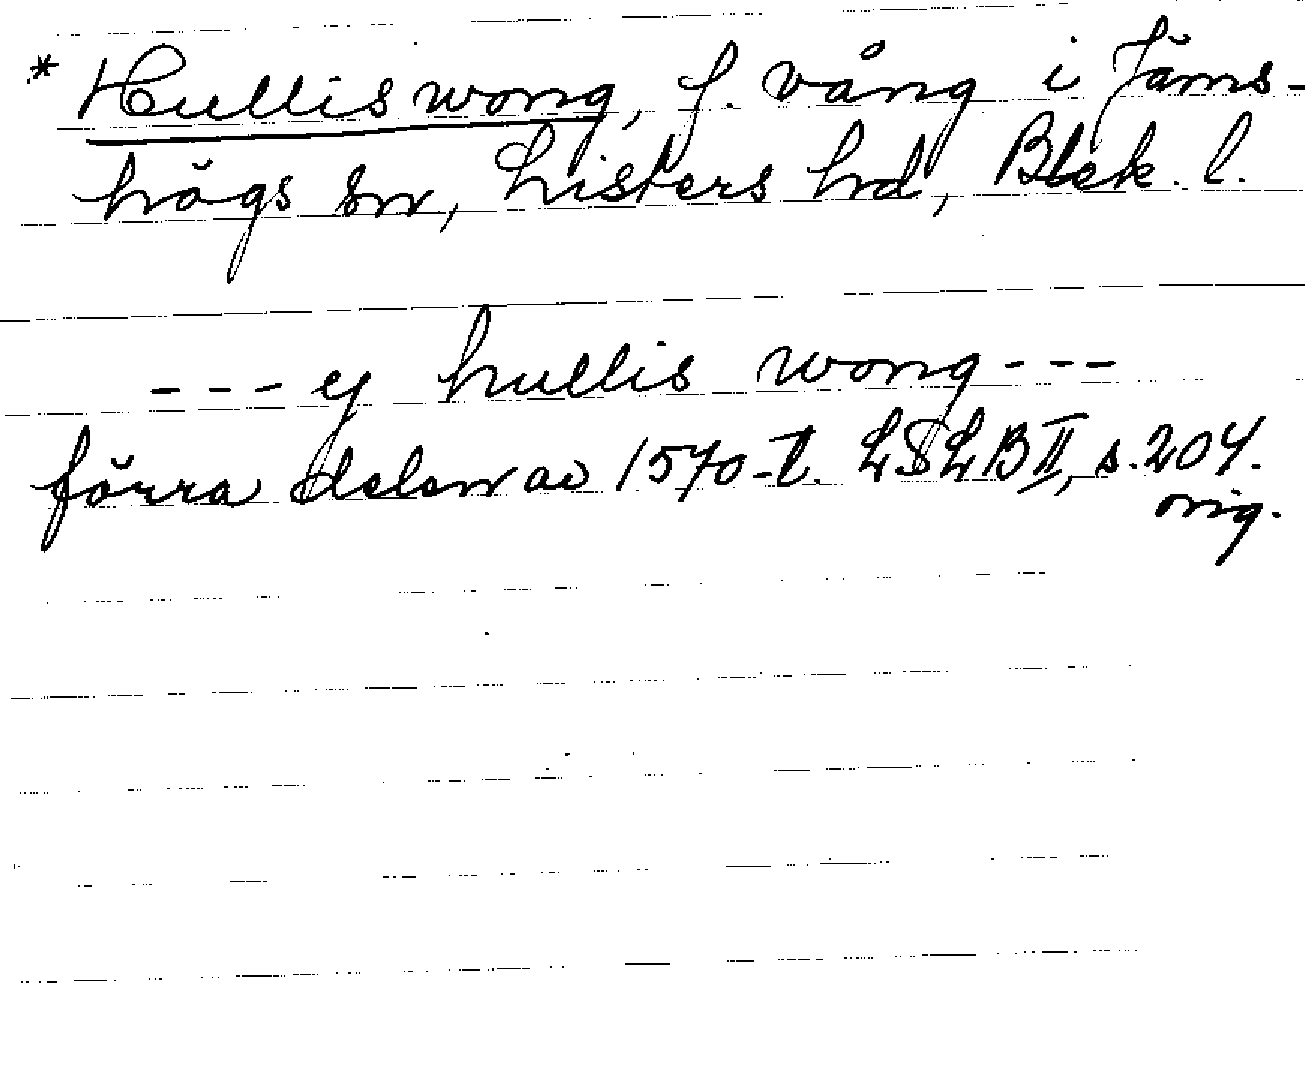 * Hulliswong, f. vång i Jäms-
högs sn, Listers hd, Blek. l.
--- ej hullis wong ---
förra delen av 1570-t. LSLB II, s. 204.
orig.